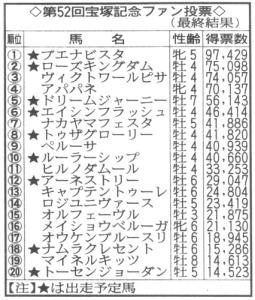 ◇第52回宝塚記念ファン投票◇
(最終結果)
順位 馬名 性齢 得票数
① ★ブエナビスタ 牝5 97,429
② ★ローズキングダム 牡4 75,098
③ ヴィクトワールピサ 牡4 74,057
④ アパパネ 牝4 70,341
⑤ ★ドリームジャーニー 牡7 56,143
⑥ ★エイシンフラッシュ 牡4 46,414
⑦ ★ナカヤマフェスタ 牡5 41,886
⑧ ★トゥザグローリー 牡4 41,820
⑨ ペルーサ 牡4 40,939
⑩ ★ルーラーシップ 牡4 40,660
⑪ ヒルノダムール 牡4 33,253
⑫ ★アーネストリー 牡6 29,047
⑬ キャプテントゥーレ 牡6 24,804
⑭ ロジユニヴァース 牡5 23,419
⑮ オルフェーヴル 牡3 21,875
⑯ メイショウベルーガ 牝6 21,130
⑰ オウケンブルースリ 牡6 18,945
⑱ ★ナムラクレセント 牡6 15,286
⑲ マイネルキッツ 牡8 14,613
⑳ ★トーセンジョーダン 牡5 14,523
【注】★は出走予定馬